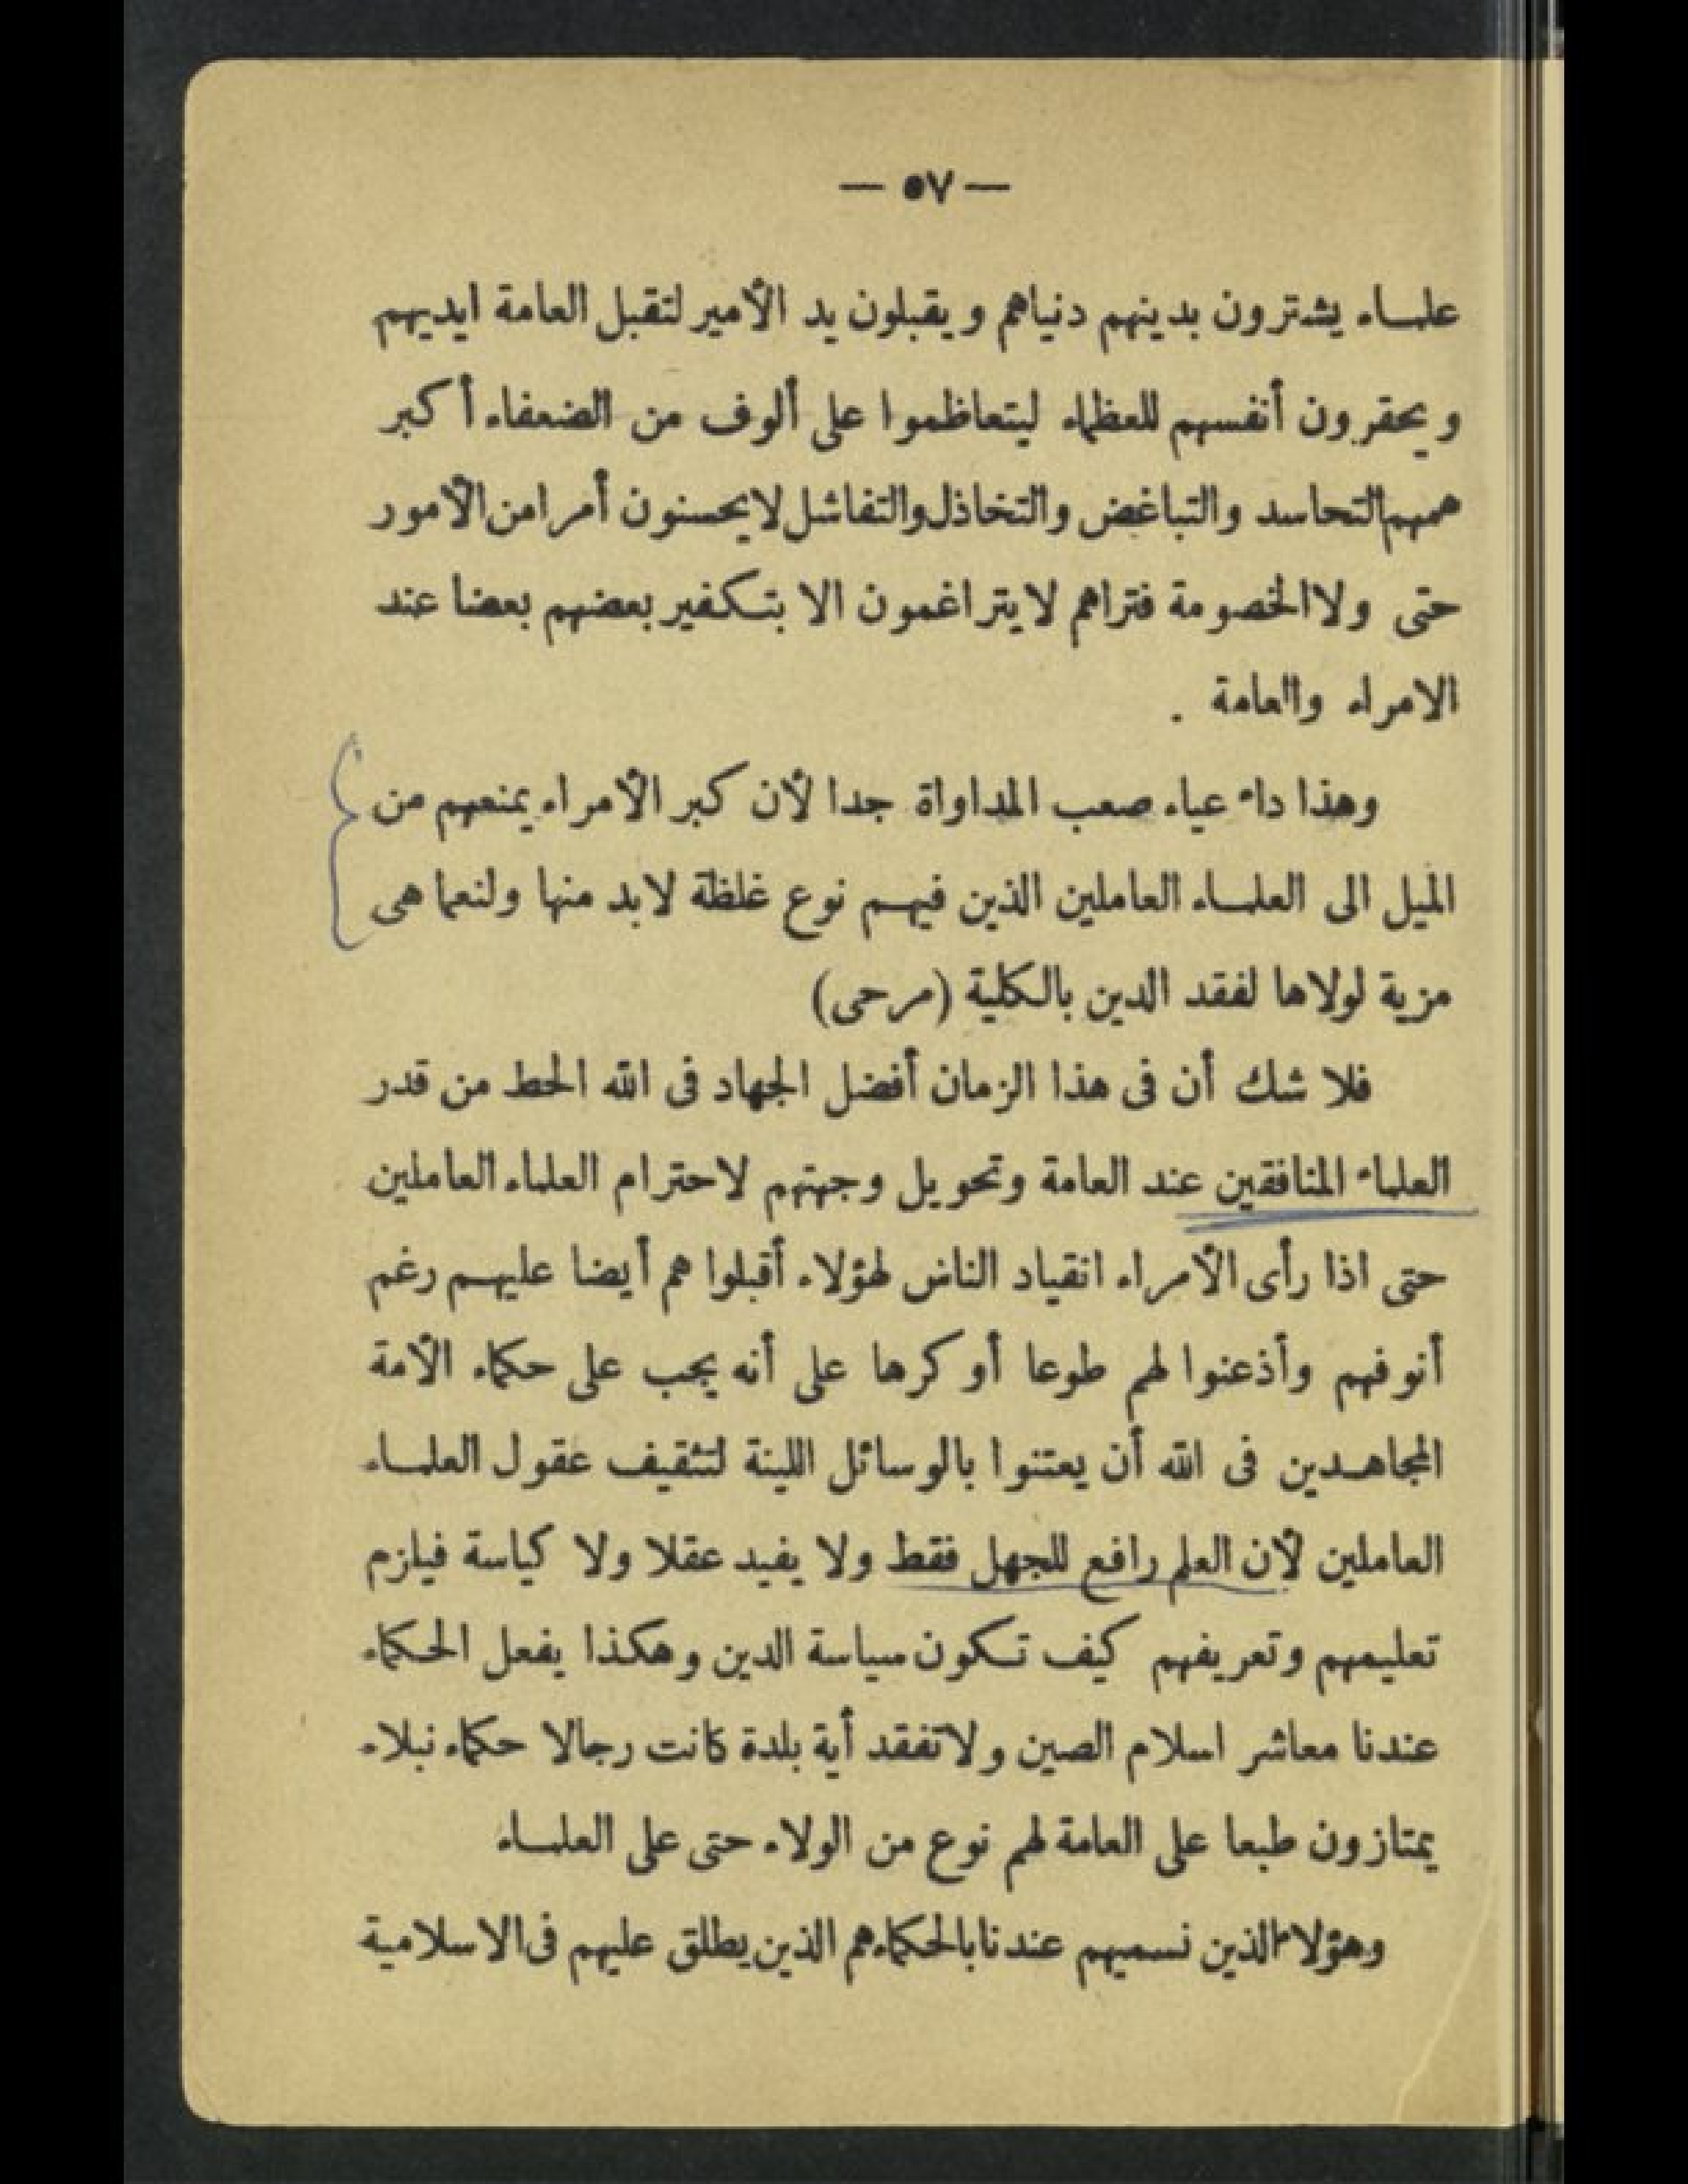 — ٥٧ —
علماء يشترون بدينهم دنياهم ويقبلون يد الأمير لتقبل العامة ايديهم
ويحقرون أنفسهم للعظماء ليتعاظموا على ألوف من الضعفاء أكبر
همهم التحاسد والتباغض والتخاذل والتفاشل لا يحسنون أمرا من الأمور
حتى ولا الخصومة فتراهم لا يتراغمون الا بتكفير بعضهم بعضا عند
الامراء والعامة .
وهذا داء عياء صعب المداواة جدا لأن كبر الأمراء يمنعهم من
الميل الى العلماء العاملين الذين فيهم نوع غلظة لابد منها ولنعما هى
مزية لولاها لفقد الدين بالكلية (مرحى)
فلا شك أن فى هذا الزمان أفضل الجهاد فى الله الحط من قدر
العلماء المنافقين عند العامة وتحويل وجهتهم لاحترام العلماء العاملين
حتى اذا رأى الأمراء انقياد الناس لهؤلاء أقبلوا هم أيضا عليهم رغم
أنوفهم وأذعنوا لهم طوعا أو كرها على أنه يجب على حكماء الأمة
المجاهدين فى الله أن يعتنوا بالوسائل اللينة لتثقيف عقول العلماء
العاملين لأن العلم رافع للجهل فقط ولا يفيد عقلا ولا كياسة فيلزم
تعليمهم وتعريفهم كيف تكون سياسة الدين وهكذا يفعل الحكماء
عندنا معاشر اسلام الصين ولا تفقد أية بلدة كانت رجالا حكماء نبلاء
يمتازون طبعا على العامة لهم نوع من الولاء حتى على العلماء
وهؤلاء الذين نسميهم عندنا بالحكماء هم الذين يطلق عليهم فى الاسلامية